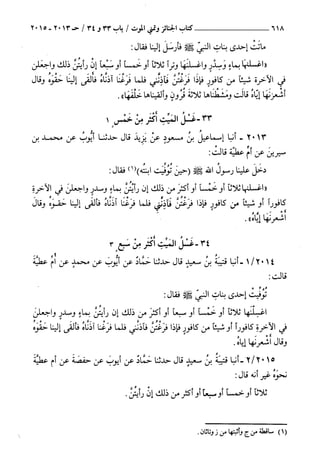 ٦١٨ كتاب الجنائز وتمني الموت / باب ٣٣ و ٣٤ / حـ ٢٠١٣ - ٢٠١٥
ماتَتْ إحدى بناتِ النبيِّ ﷺ فأرسَلَ إلينا فقال:
«اغسلنَها بماءٍ وسِدْرٍ واغسلنَها وتراً ثلاثاً أو خمساً أو سَبْعاً إنْ رأيتُنَّ ذلك واجعلْن
في الآخرة شيئاً من كافورٍ فإذا فَرَغْتُنَّ فآذِنَّني فلما فَرَغْنا آذنَّاهُ فألقى إلينا حَقْوَهُ وقال
أشعرنَها إيَّاهُ قالت ومَشَطْناها ثلاثةَ قُرونٍ وألقيناها خَلْفَها».
٣٣- غَسْلُ المَيِّتِ أكثرَ مِنْ خَمْسٍ ١
٢٠١٣ - أنبا إسماعيلُ بنُ مسعودٍ عنْ يَزيدَ قال حدثنـا أيُّوبُ عن محمـد بن
سيرينَ عن أمِّ عطيَّةَ قالتْ:
دخلَ علينا رسولُ اللهِ ﷺ (حينَ تُوُفِّيَتِ ابنتُه)(١) فقال:
«اغسلنَها ثلاثاً أو خمساً أو أكثرَ من ذلك إن رأيتُنَّ بماءٍ وسدرٍ واجعلنَ في الآخرةِ
كافوراً أو شيئاً من كافورٍ فإذا فرغتُنَّ فآذِنَّني فلما فَرَغْنا آذنَّاهُ فألقى إلينا حَقْـوَهُ وقالَ
أشعرنَها إيَّاهُ».
٣٤- غَسْلُ المَيِّتِ أكثرَ مِنْ سَبعٍ ٢
١/٢٠١٤ - أنبا قتيبةُ بنُ سعيدٍ قال حدثنا حَمَّادٌ عن أيوبَ عن محمدٍ عن أمِّ عطيَّةَ
قالت:
تُوُفِّيَتْ إحدى بناتِ النبيِّ ﷺ فقال:
اغسِلْنَها ثلاثاً أو خمساً أو سبعاً أو أكثرَ من ذلك إن رأيتُنَّ بماءٍ وسدرٍ واجعلنَ
في الآخرةِ كافوراً أو شيئاً من كافورٍ فإذا فرغتُنَّ فآذنَّني فلما فَرَغْنا آذنَّاهُ فألقى إلينا حَقْوَهُ
وقال أشعرنَها إيَّاهُ.
٢/٢٠١٥ - أنبا قتيبةُ بنُ سعيدٍ قال حدثنا حَمَّادٌ عن أيوبَ عن حفصةَ عن أم عطيَّةَ
نحوَهُ غير أنه قال:
ثلاثاً أو خمساً أو سبعاً أو أكثرَ من ذلك إنْ رأيتُنَّ.
(١) ساقطة من ح وأثبتها من ز وثاثان.